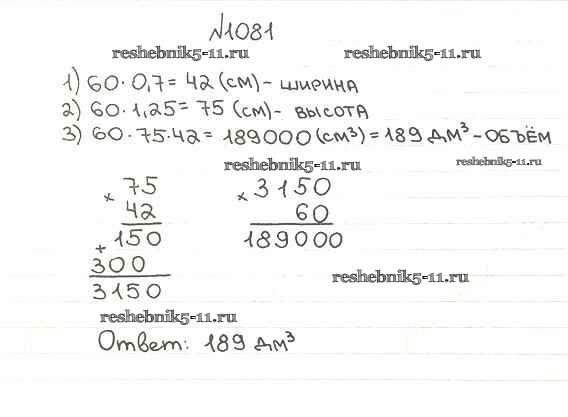 №1081
reshebnik5-11.ru reshebnik5-11.ru
1) 60 · 0,7 = 42 (см) - ширина
2) 60 · 1,25 = 75 (см) - высота
3) 60 · 75 · 42 = 189000 (см³) = 189 дм³ - объём
reshebnik5-11.ru reshebnik5-11.ru
× 75 × 3150
42 60
+ 150 189000
300
3150 reshebnik5-11.ru
reshebnik5-11.ru
Ответ: 189 дм³